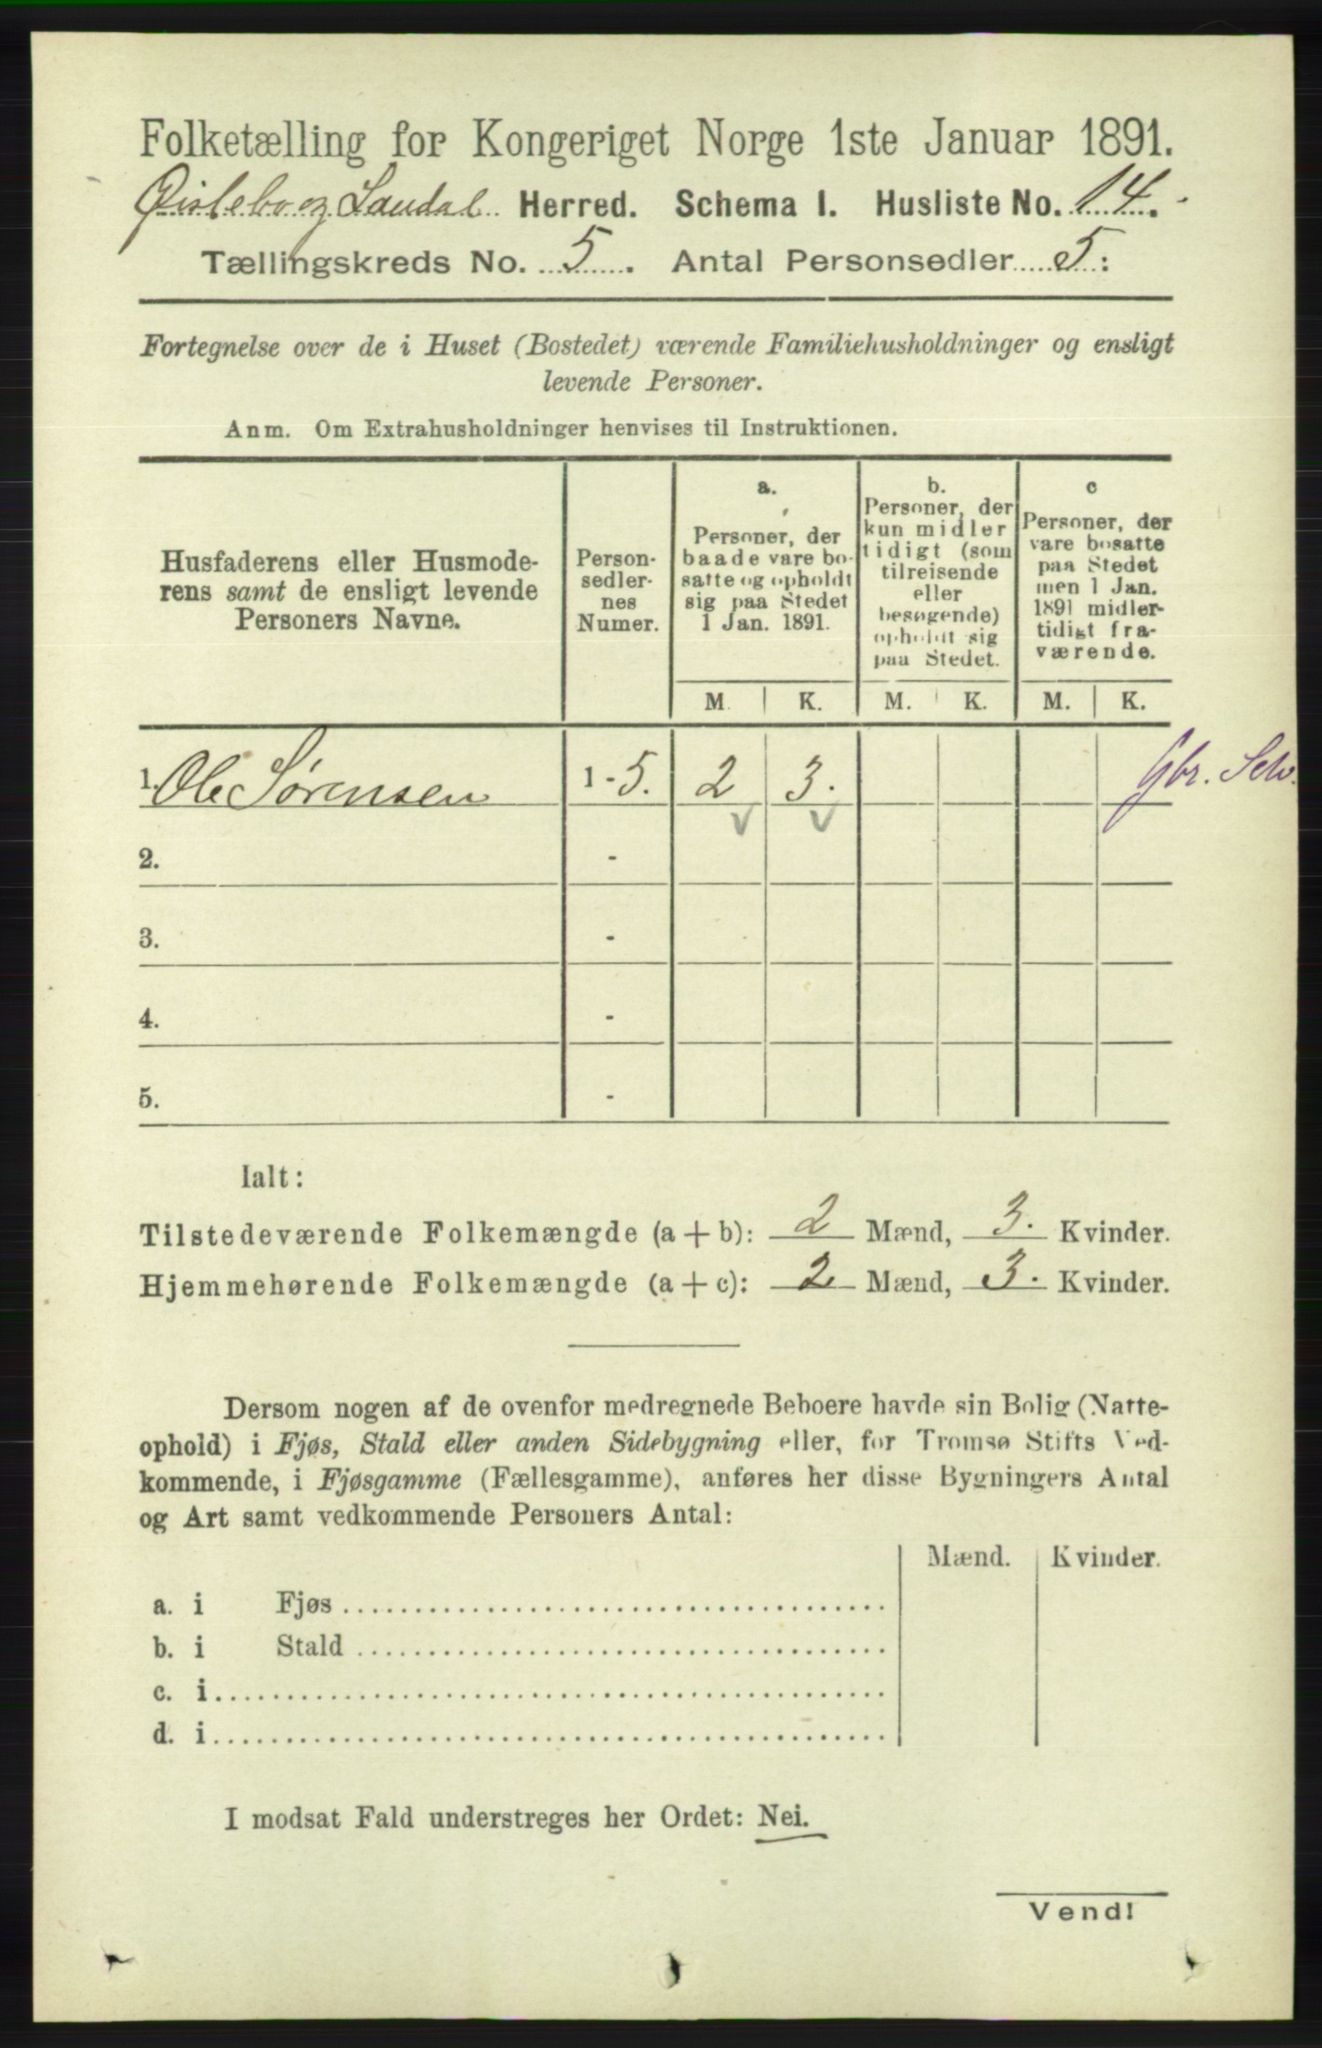 Folketælling for Kongeriget Norge 1ste Januar 1891.
Øisleboe og Laudal Herred. Schema I. Husliste No. 14.
Tællingskreds No. 5. Antal Personsedler 5:
Fortegnelse over de i Huset (Bostedet) værende Familiehusholdninger og ensligt
levende Personer.
Anm. Om Extrahusholdninger henvises til Instruktionen.
Husfaderens eller Husmode-
rens samt de ensligt levende
Personers Navne.
Person-
sedler-
nes
Numer.
a.
Personer, der
baade vare bo-
satte og opholdt
sig paa Stedet
1 Jan. 1891.
b.
Personer, der
kun midler
tidigt (som
tilreisende
eller
besøgende)
opholdt sig
paa Stedet.
c
Personer, der
vare bosatte
paa Stedet
men 1 Jan.
1891 midler-
tidigt fra-
værende.
M. K. M. K. M. K.
1. Ole Sørensen 1 - 5. 2 3. Gbr. Selv.
2. -
3. -
4. -
5. -
Ialt:
Tilstedeværende Folkemængde (a + b): 2 Mænd, 3. Kvinder.
Hjemmehørende Folkemængde (a + c): 2 Mænd, 3. Kvinder.
Dersom nogen af de ovenfor medregnede Beboere havde sin Bolig (Natte-
ophold) i Fjøs, Stald eller anden Sidebygning eller, for Tromsø Stifts Ved-
kommende, i Fjøsgamme (Fællesgamme), anføres her disse Bygningers Antal
og Art samt vedkommende Personers Antal:
Mænd. Kvinder.
a. i Fjøs
b. i Stald
c. i
d. i
I modsat Fald understreges her Ordet: Nei.
Vend!